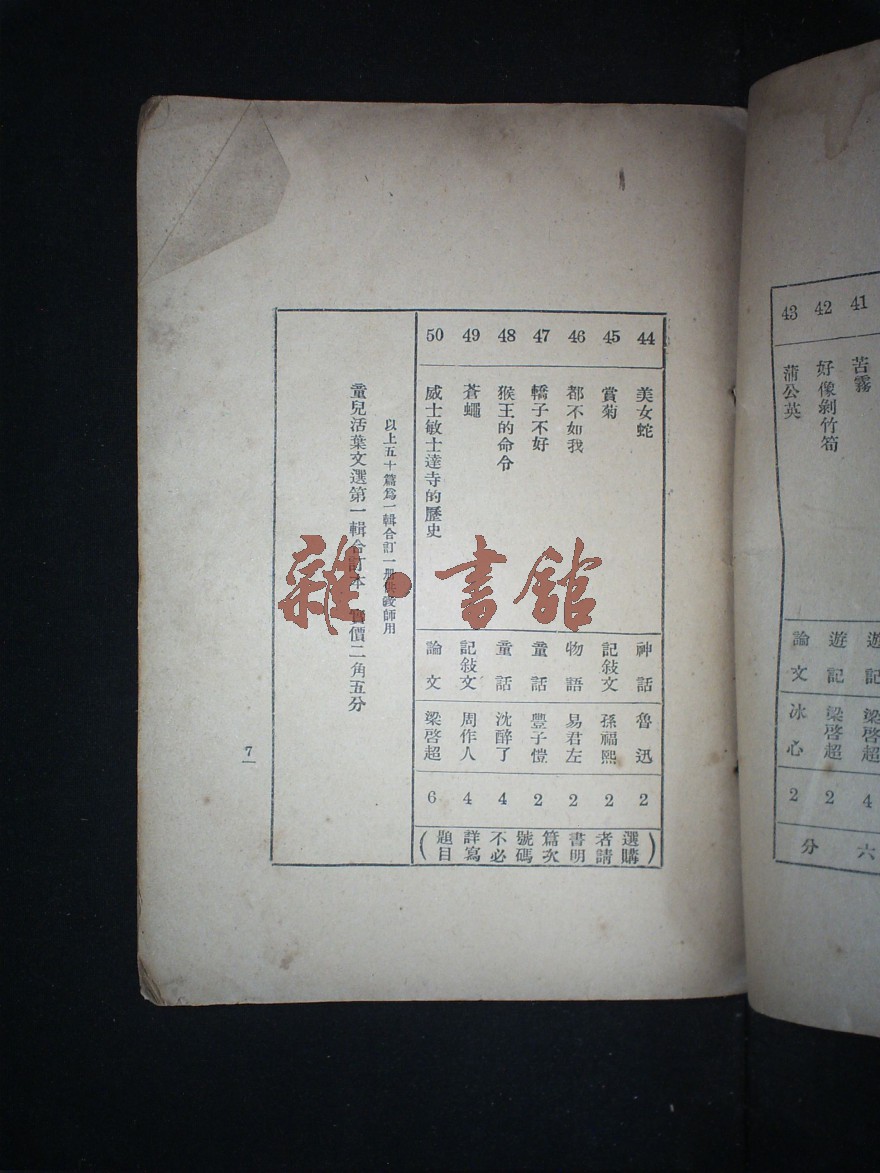 41 苦霧 遊記 梁啓超 4
42 好像剝竹筍 遊記 梁啓超 2
43 蒲公英 論文 冰心 2
六分
44 美女蛇 神話 魯迅 2
45 賞菊 記敍文 孫福熙 2
46 都不如我 物語 易君左 2
47 轎子不好 童話 豐子愷 2
48 猴王的命令 童話 沈醉了 4
49 蒼蠅 記敍文 周作人 4
50 威士敏士達寺的歷史 論文 梁啓超 6
(選購者請書明篇次號碼不必詳寫題目)
以上五十篇爲一輯合訂一册供敎師用
童兒活葉文選第一輯合訂本 實價二角五分
7
雜·書館